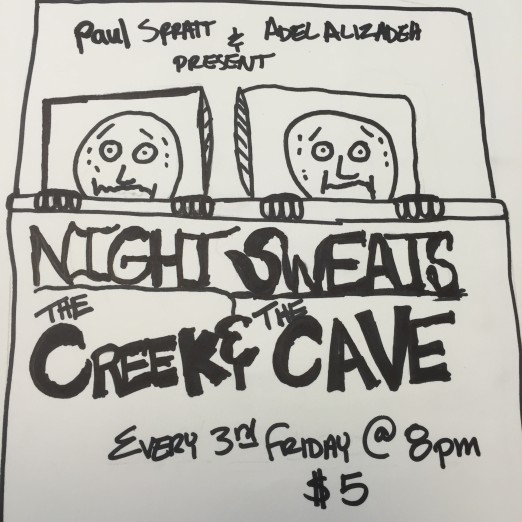 Paul SPRATT & ADEL ALIZADEH
PRESENT
NIGHT SWEATS
THE CREEK & THE CAVE
EVERY 3rd FRIDAY @ 8pm
$5